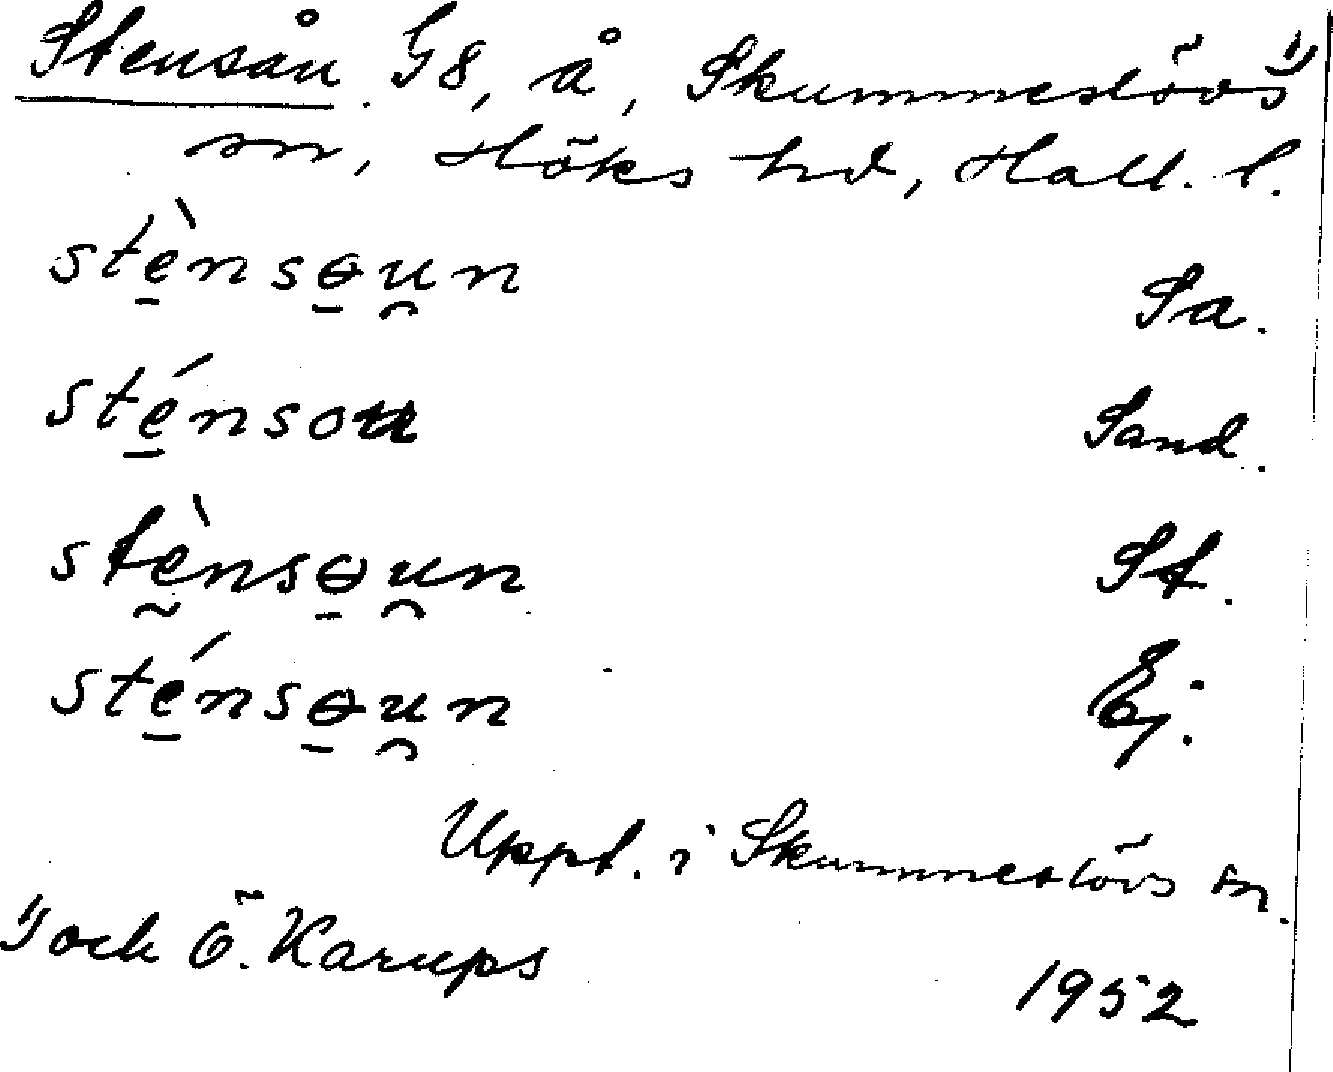 Stensån G8, å, Skummeslövs¹⁾
sn, Höks hd, Hall. l.
stè̱nsɵ̱u̯n Sa.
sté̱nsou Sand.
stḛ̀nsɵ̱u̯n St.
sté̱nsɵ̱u̯n Ej.
Uppt. i Skummeslövs sn.
¹⁾ och Ö. Karups
1952